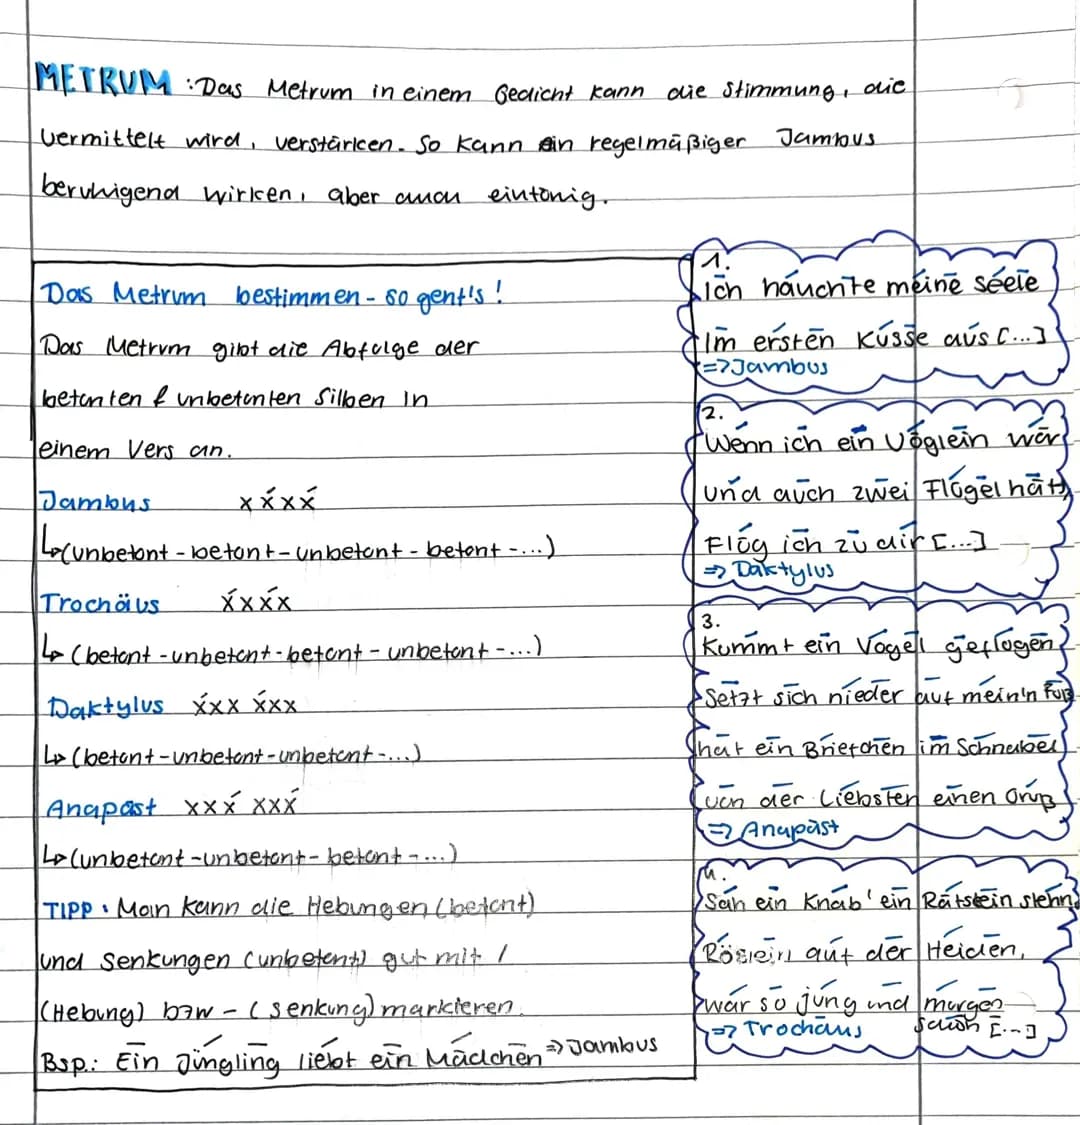 METRUM : Das Metrum in einem Gedicht kann die Stimmung, die
vermittelt wird, verstärken. So kann ein regelmäßiger Jambus
beruhigend wirken, aber auch eintönig.
Das Metrum bestimmen - so geht's !
Das Metrum gibt die Abfolge der
betonten & unbetonten Silben in
einem Vers an.
Jambus x x́ x x́
↳ (unbetont - betont - unbetont - betont - ...)
Trochäus x́ x x́ x
↳ (betont - unbetont - betont - unbetont - ...)
Daktylus x́ x x x́ x x
↳ (betont - unbetont - unbetont - ...)
Anapäst x x x́ x x x́
↳ (unbetont - unbetont - betont - ...)
TIPP : Man kann die Hebungen (betont)
und Senkungen (unbetont) gut mit /
(Hebung) bzw - (Senkung) markieren.
Bsp.: Ein Jüngling liebt ein Mädchen => Jambus
1.
Ich hauchte meine Seele
Im ersten Kusse aus [...]
=> Jambus
2.
Wenn ich ein Vöglein wär
und auch zwei Flügel hätt,
Flög ich zu dir [...]
=> Daktylus
3.
Kommt ein Vogel geflogen,
Setzt sich nieder auf mein'n Fuß
hat ein Briefchen im Schnabel
von der Liebsten einen Gruß
=> Anapäst
4.
Sah ein Knab' ein Rätslein stehn,
Röslein auf der Heiden,
war so jung und morgen
schön [...]
=> Trochäus